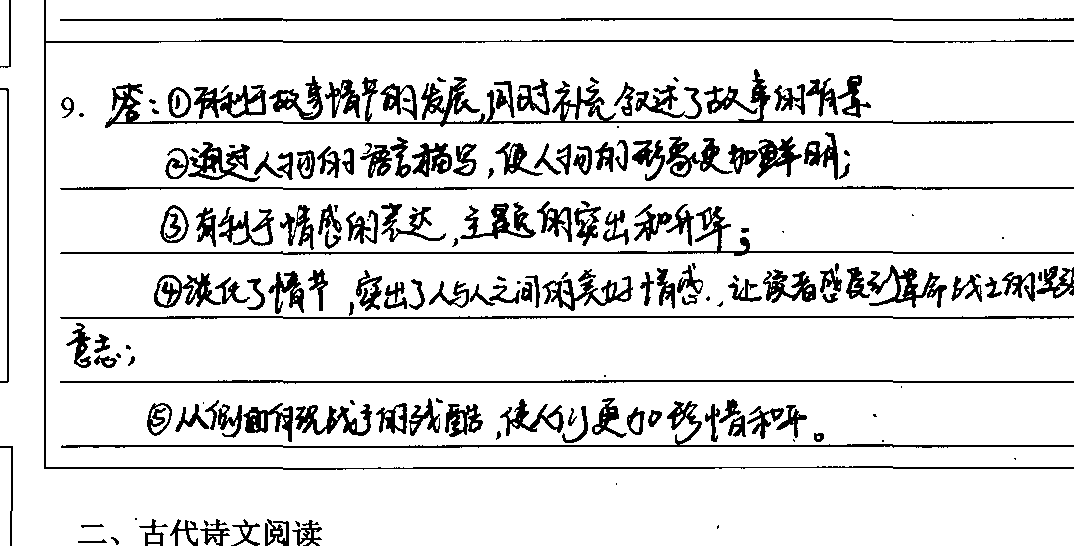 9. 答：①有利于故事情节的发展,同时补充叙述了故事的背景
②通过人物的语言描写,使人物的形象更加鲜明;
③有利于情感的表达,主题的突出和升华;
④淡化了情节,突出了人与人之间的美好情感,让读者感受到革命战士的坚强
意志;
⑤从侧面体现战争的残酷,使人们更加珍惜和平。
二、古代诗文阅读